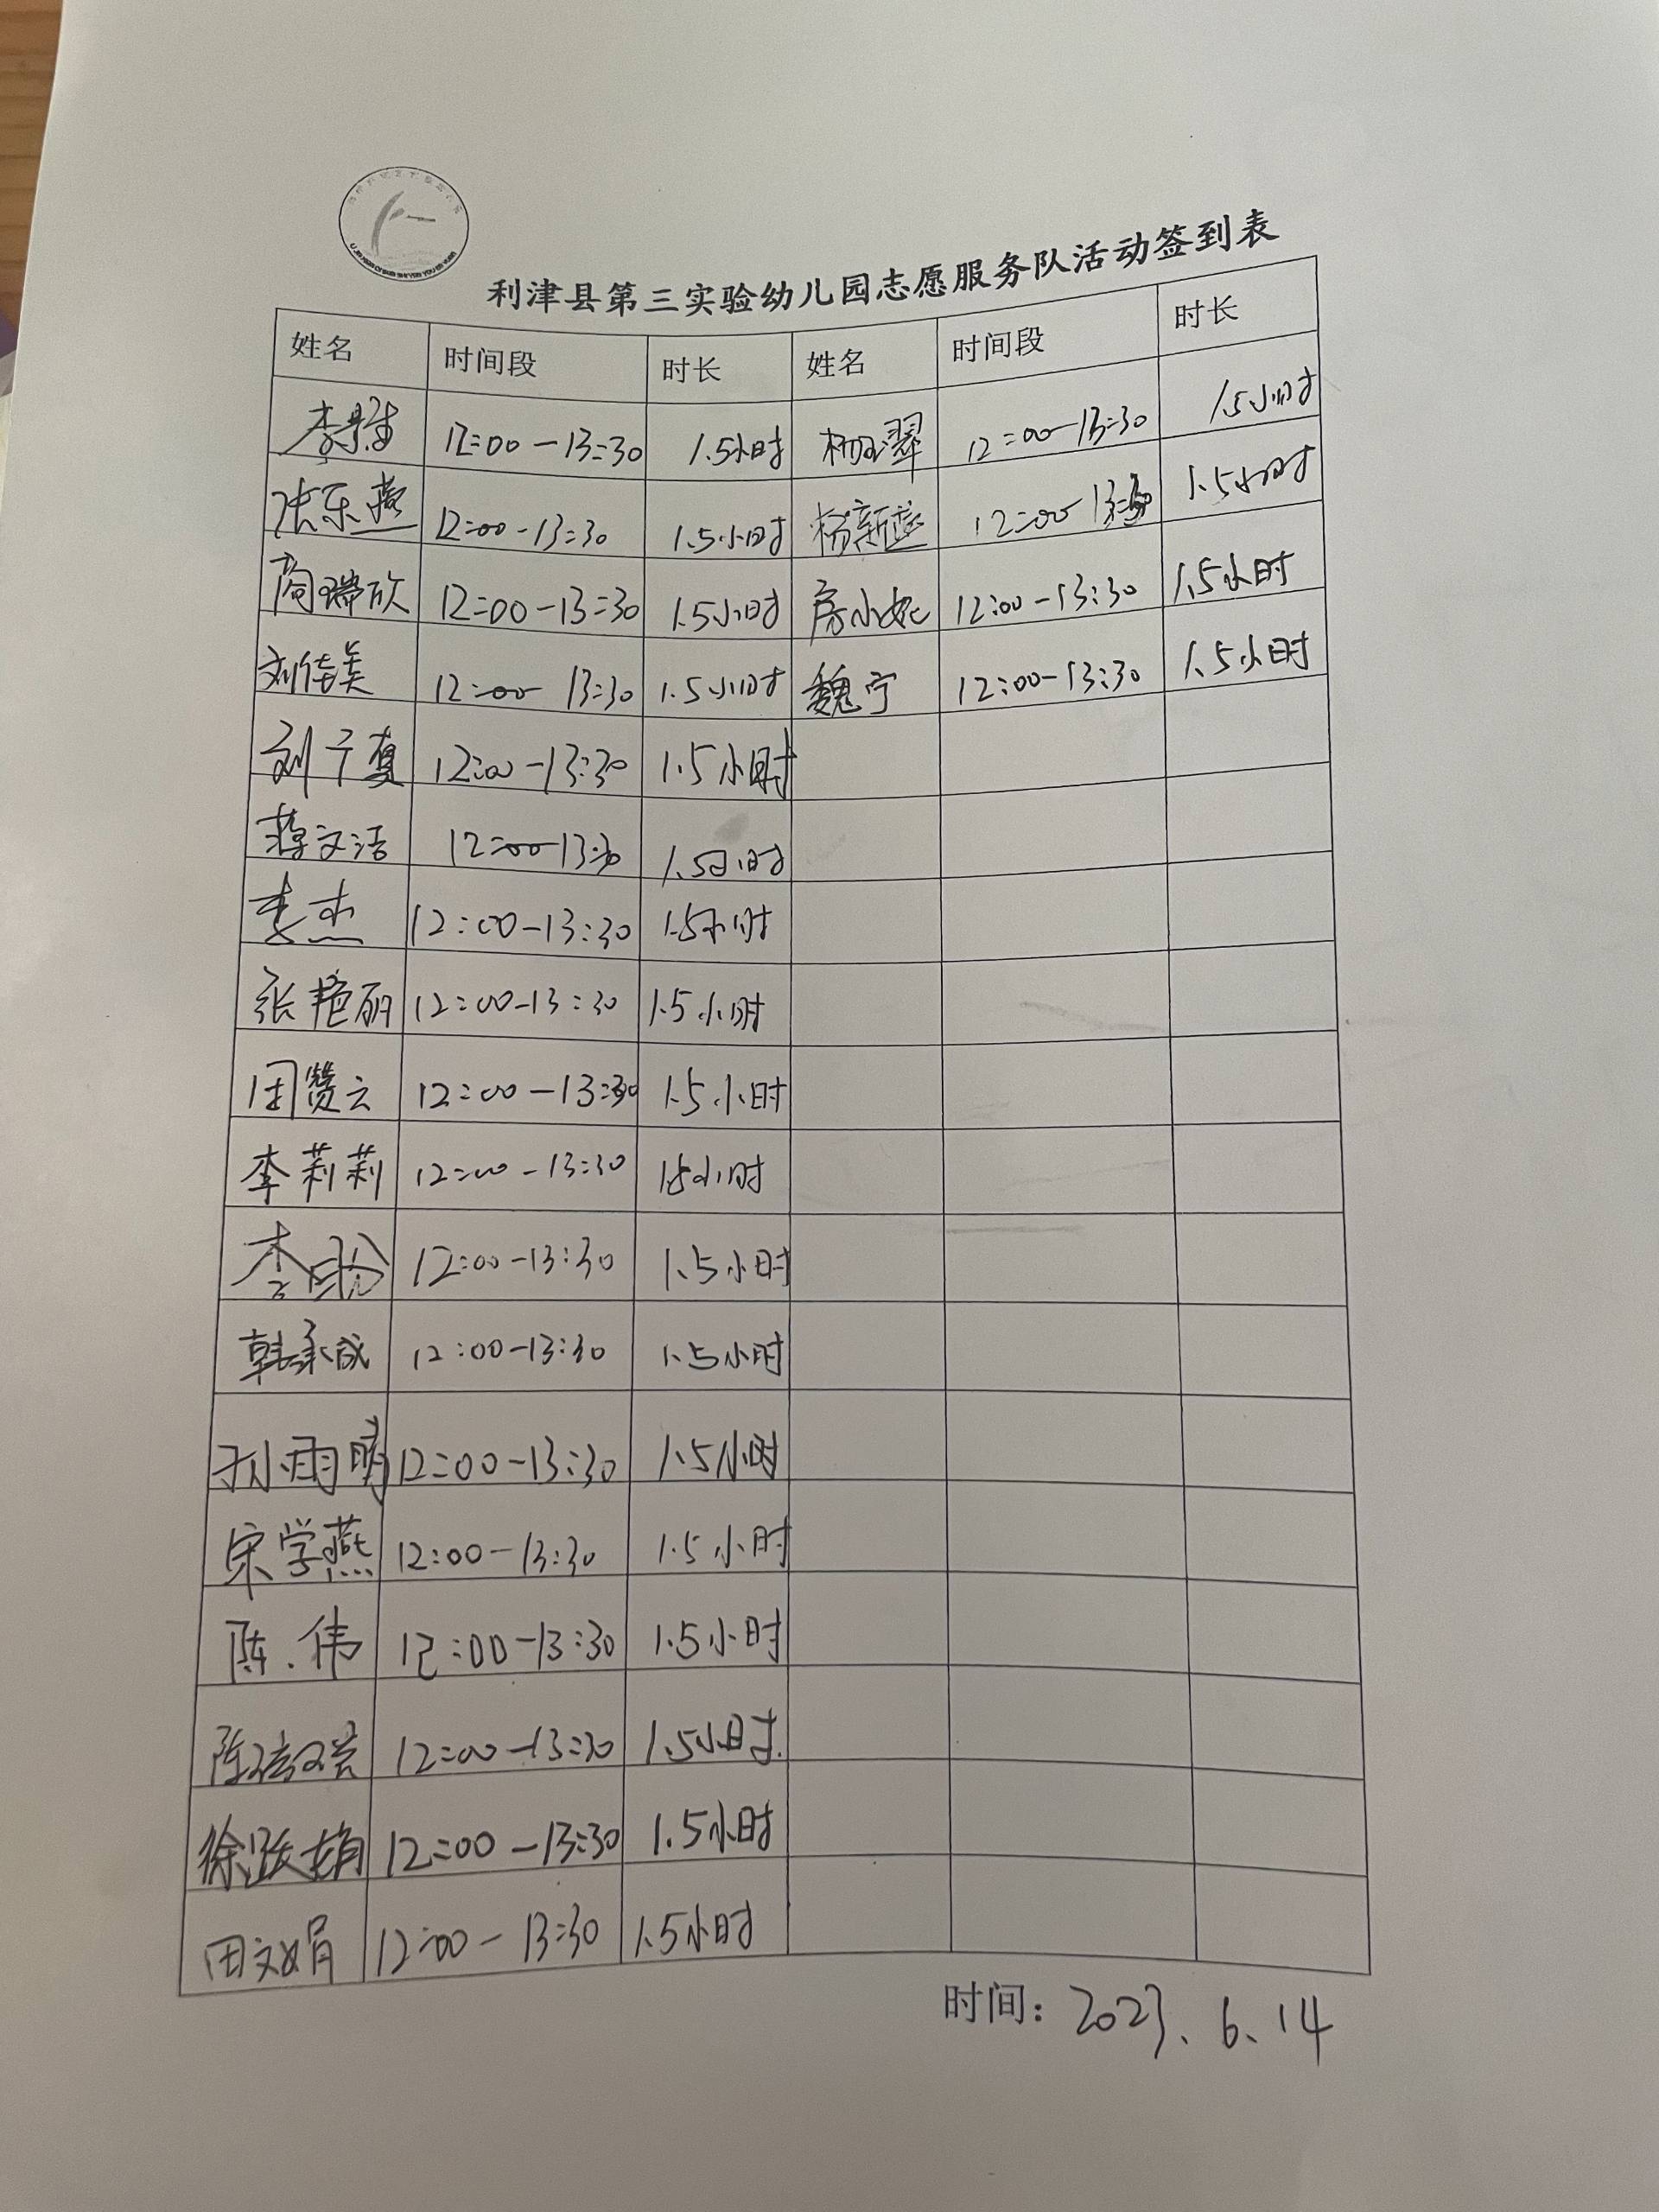 利津县第三实验幼儿园志愿服务队活动签到表
姓名 时间段 时长 姓名 时间段 时长
李 12:00-13:30 1.5小时 杨玉翠 12:00-13:30 1.5小时
张乐燕 12:00-13:30 1.5小时 杨新 12:00-13:30 1.5小时
商瑞欣 12:00-13:30 1.5小时 房小妃 12:00-13:30 1.5小时
刘佳美 12:00-13:30 1.5小时 魏宁 12:00-13:30 1.5小时
刘 12:00-13:30 1.5小时
蒋文洁 12:00-13:30 1.5小时
李杰 12:00-13:30 1.5小时
张艳丽 12:00-13:30 1.5小时
田赞云 12:00-13:30 1.5小时
李莉莉 12:00-13:30 1.5小时
李盼 12:00-13:30 1.5小时
韩承成 12:00-13:30 1.5小时
孙雨晴 12:00-13:30 1.5小时
宋学燕 12:00-13:30 1.5小时
陈伟 12:00-13:30 1.5小时
陈 12:00-13:30 1.5小时
徐跃娟 12:00-13:30 1.5小时
田文娟 12:00-13:30 1.5小时
时间：2023、6、14